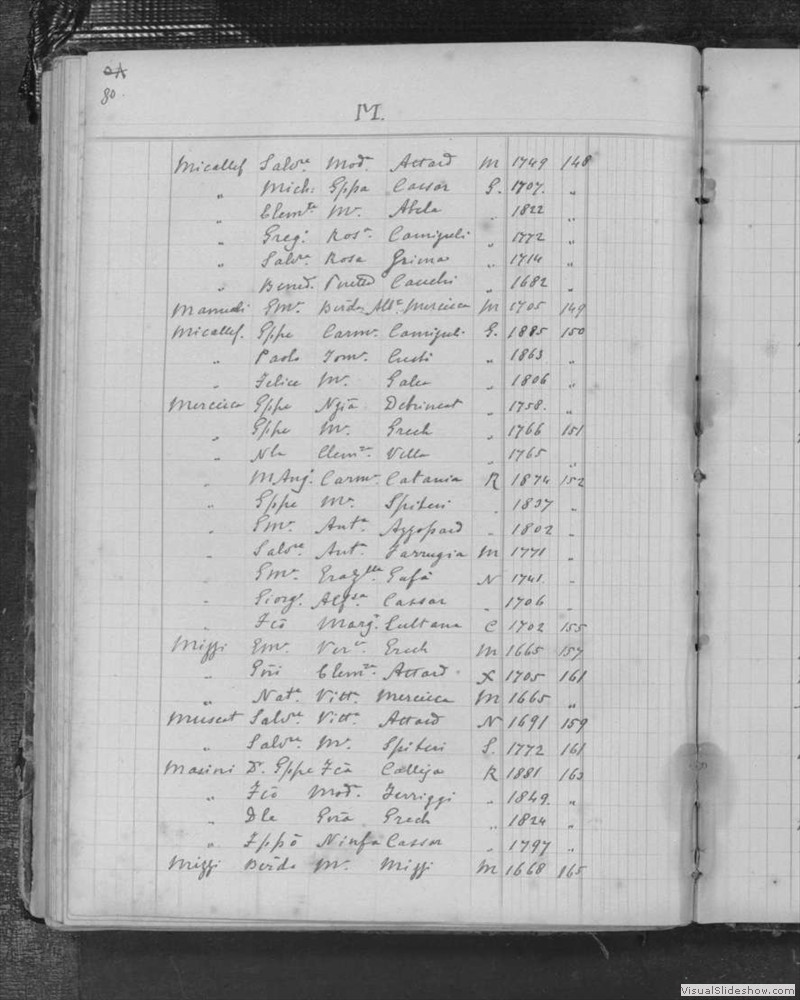 80.
M.
Micallef Salvre. Modta. Attard M 1749 148
" Mich: Gppa Cassar G. 1707. "
" Clemte M.a Abela " 1822 "
" Greg.o Rosa. Camiguli " 1772 "
" Salvre. Rosa Grima " 1714 "
" Bened. Cauchi " 1682 "
Mamudi Em.e Berda Mercieca M 1705 149
Micallef. Gppe Carm.a Camiguli G. 1885 150
" Paolo Tom.a Curti " 1863 "
" Felice M.a Galea " 1806 "
Mercieca Gppe Ngia Debrincat " 1758. "
" Gppe M.a Grech " 1766 151
" Nla Clem.za Vella " 1765 "
" MAng.o Carm.a Catania R 1874 152
" Gppe M.a Spiteri " 1837 "
" Em.e Ant.a Azzopard " 1802 "
" Salvre. Ant.a Farrugia M 1771 "
Em.e Grazlla Gafà N 1741. "
" Giorg.o Alfsa Cassar " 1706 "
" Fcō Marg.a Sultana C 1702 155
Mizzi Em.e Ver.a Grech M 1665 157
" Gōri Clem.za Attard X 1705 161
" Nat.e Vitt.a Mercieca M 1665 "
Muscat Salvre. Vitt.a Attard N 1691 159
" Salvre. M.a Spiteri S. 1772 161
Masini Dr. Gppe Fcā Calleja R 1881 163
" Fcō Mod.a Ferriggi " 1849. "
" Dle Gvīa Grech " 1824 "
" Fppō Ninfa Cassar " 1797 "
Mizzi Berdo M.a Mizzi M 1668 165
VisualSlideshow.com